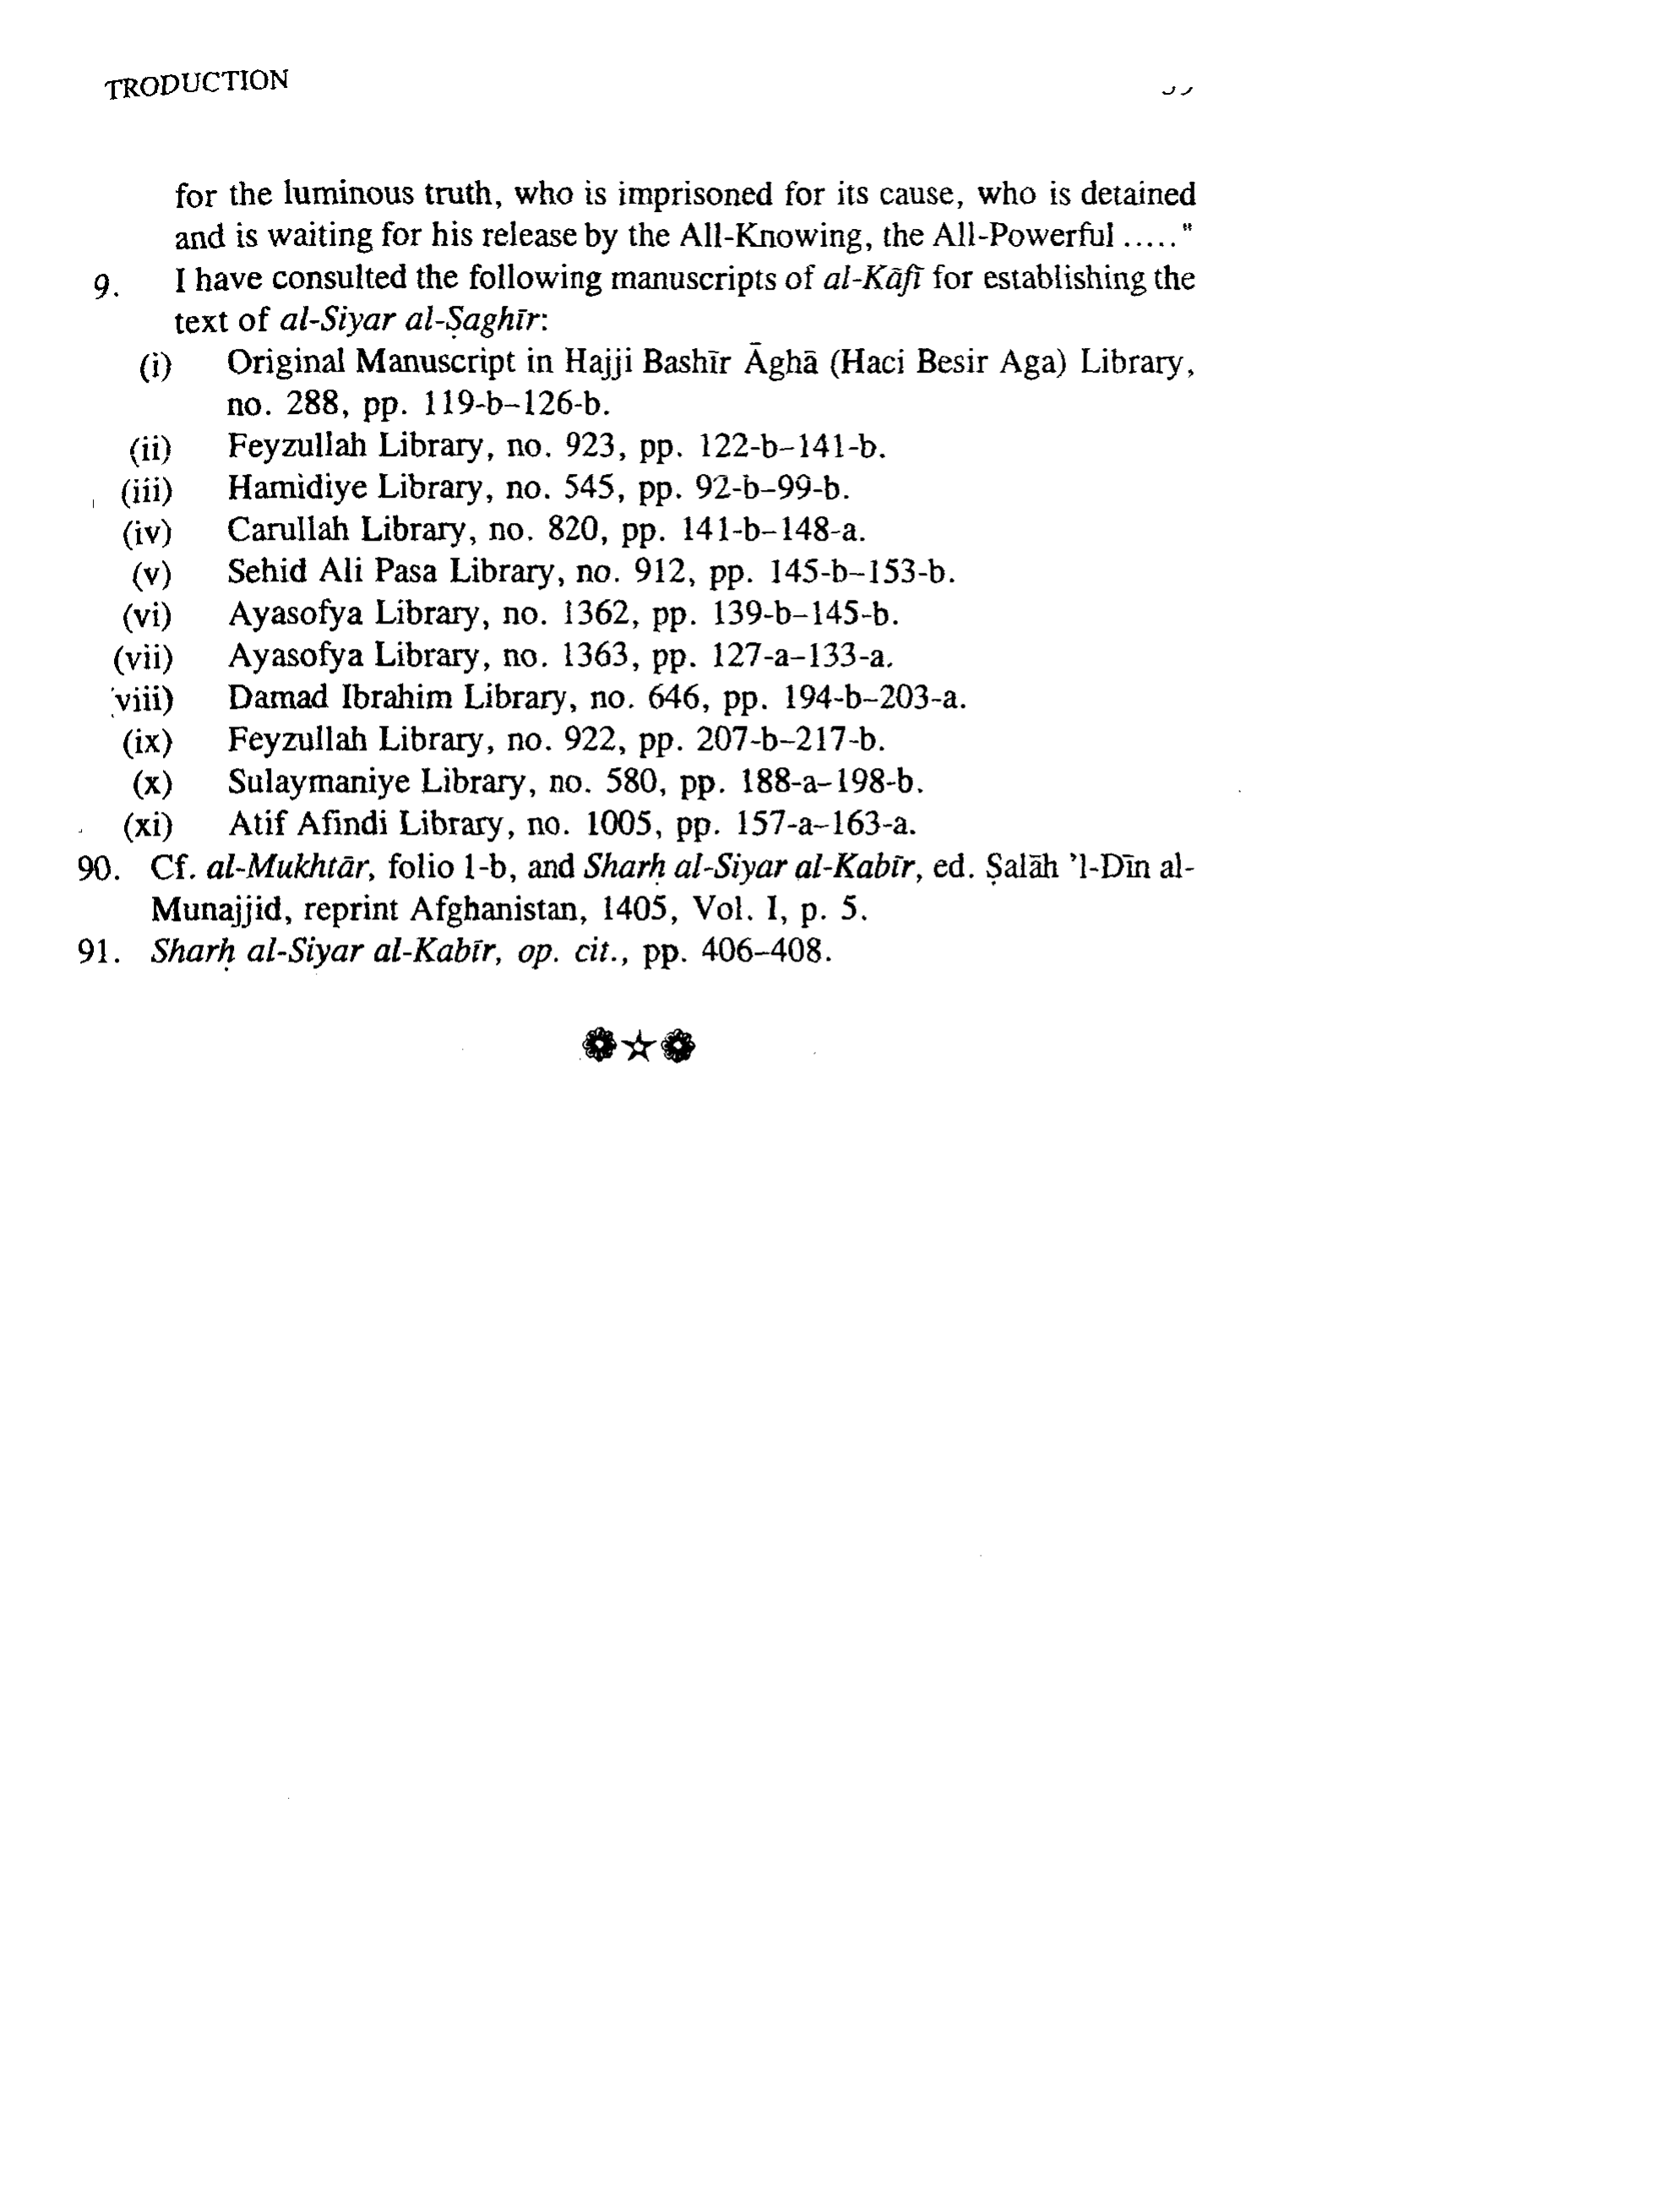 TRODUCTION
for the luminous truth, who is imprisoned for its cause, who is detained
and is waiting for his release by the All-Knowing, the All-Powerful ....."
9. I have consulted the following manuscripts of al-Kāfī for establishing the
text of al-Siyar al-Ṣaghīr:
(i) Original Manuscript in Hajji Bashīr Āghā (Haci Besir Aga) Library,
no. 288, pp. 119-b–126-b.
(ii) Feyzullah Library, no. 923, pp. 122-b–141-b.
(iii) Hamidiye Library, no. 545, pp. 92-b–99-b.
(iv) Carullah Library, no. 820, pp. 141-b–148-a.
(v) Sehid Ali Pasa Library, no. 912, pp. 145-b–153-b.
(vi) Ayasofya Library, no. 1362, pp. 139-b–145-b.
(vii) Ayasofya Library, no. 1363, pp. 127-a–133-a.
viii) Damad Ibrahim Library, no. 646, pp. 194-b–203-a.
(ix) Feyzullah Library, no. 922, pp. 207-b–217-b.
(x) Sulaymaniye Library, no. 580, pp. 188-a–198-b.
(xi) Atif Afindi Library, no. 1005, pp. 157-a–163-a.
90. Cf. al-Mukhtār, folio 1-b, and Sharḥ al-Siyar al-Kabīr, ed. Ṣalāh 'l-Dīn al-
Munajjid, reprint Afghanistan, 1405, Vol. I, p. 5.
91. Sharḥ al-Siyar al-Kabīr, op. cit., pp. 406–408.